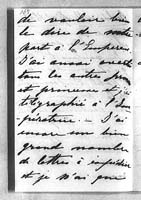 de vouloir bien
le dire de notre
part à l'Empereur
J'ai aussi
tous les autres
et
télégraphié à l'Im
pératrice. — J'ai
encore un bien
grand nombre
de lettres à
et je n'ai pu